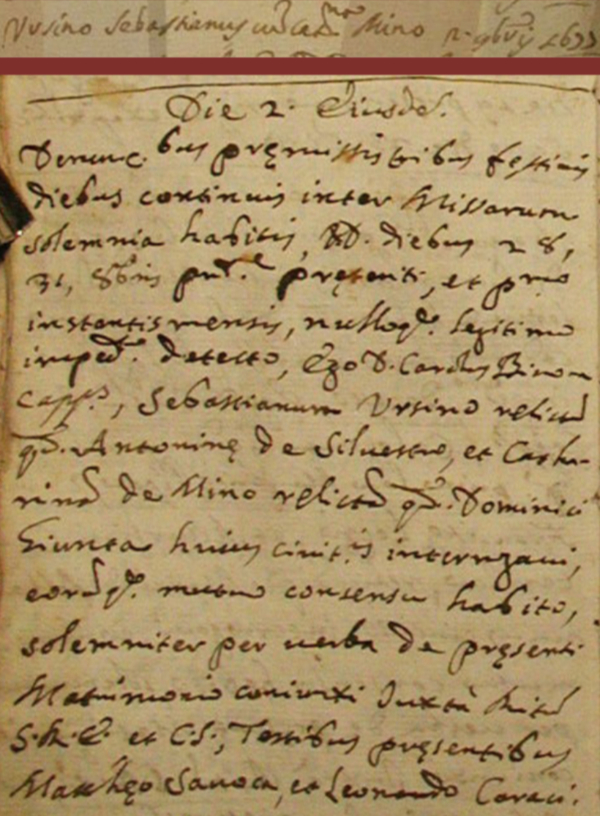 Ursino Sebastianus cu Cat.na Mino 2. 9bris 1677
Die 2. Eiusde.
Denunc.bus pręmissis tribus festiuis
diebus continuis inter Missarum
solemnia habitis, ND. diebus 28,
31, 8bris pręteriti, et p.mo
instantis mensis, nulloq. legitimo
imped. detecto, Ego D. Carolus
Capp.s, Sebastianum Ursino relictu
qd. Antoninę de Siluestro, et Catha-
rina de Mino relicta qd. Dominici
Giunta huius ciuit.is interrogaui,
eoruq. mutuo consensu habito,
solemniter per uerba de pręsenti
Matrimonio coniunxi Juxta Ritu
S.R.E. et C.S., Testibus pręsentibus
Matthęo Sauoca, et Leonardo Caraci.